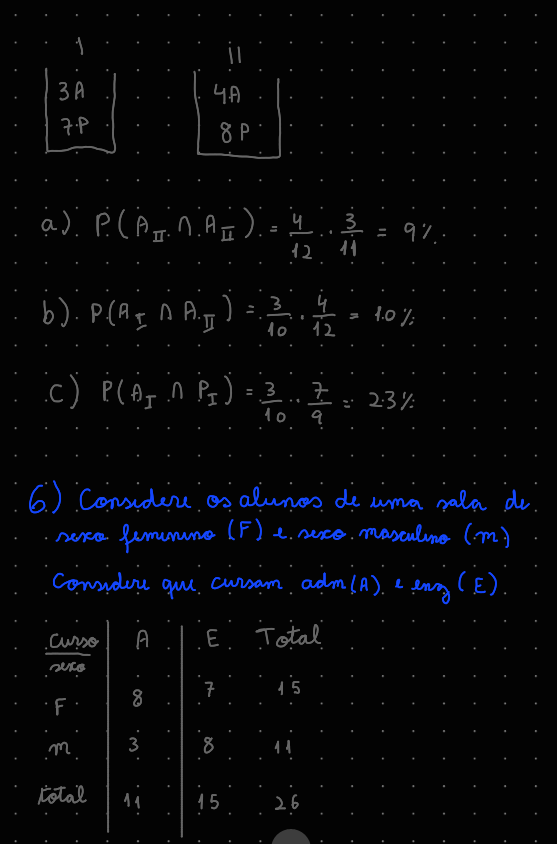 I II
3A 4A
7P 8P
a) P(A_II ∩ A_II) = 4/12 · 3/11 = 9%.
b) P(A_I ∩ A_II) = 3/10 · 4/12 = 10%
c) P(A_I ∩ P_I) = 3/10 · 7/9 = 23%
6) Considere os alunos de uma sala de
sexo feminino (F) e sexo masculino (m)
Considere que cursam adm(A) e eng (E)
curso/sexo A E Total
F 8 7 15
m 3 8 11
total 11 15 26